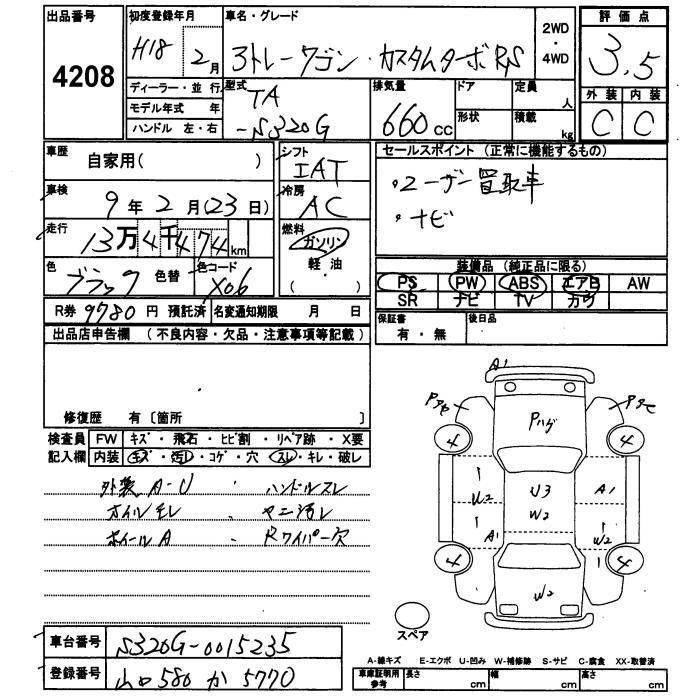 出品番号
4208
初度登録年月
H18 2月
車名・グレード
アトレーワゴン・カスタムターボRS
2WD
・
4WD
評価点
3.5
外装 内装
C C
ディーラー・並行
モデル年式 年
ハンドル 左・右
型式
TA
-S320G
排気量
660cc
ドア
形状
定員
人
積載
kg
車歴
自家用( )
車検
9年2月(23日)
走行
13万4千474km
色
ブラック 色替
色コード
X06
シフト
IAT
冷房
AC
燃料
ガソリン
軽油
( )
セールスポイント (正常に機能するもの)
・ユーザー買取車
・ナビ
装備品 (純正品に限る)
PS PW ABS エアB AW
SR ナビ TV カワ
R券 9780円 預託済 名変通知期限 月 日
保証書
有・無
後日品
出品店申告欄 (不良内容・欠品・注意事項等記載)
修復歴 有〔箇所 〕
検査員 FW キズ・飛石・ヒビ割・リペア跡・X要
記入欄 内装 キズ・汚レ・コゲ・穴・スレ・キレ・破レ
外装A-U ・ハンドルスレ
ホイールA ・Rワイパー欠
A1
4 4
U3
W2
U2
A1
A1
W2
4 4
W2
スペア
車台番号 S320G-0015235
登録番号 山口580か5770
A-線キズ E-エクボ U-凹み W-補修跡 S-サビ C-腐食 XX-取替済
車庫証明用
参考
長さ cm 幅 cm 高さ cm